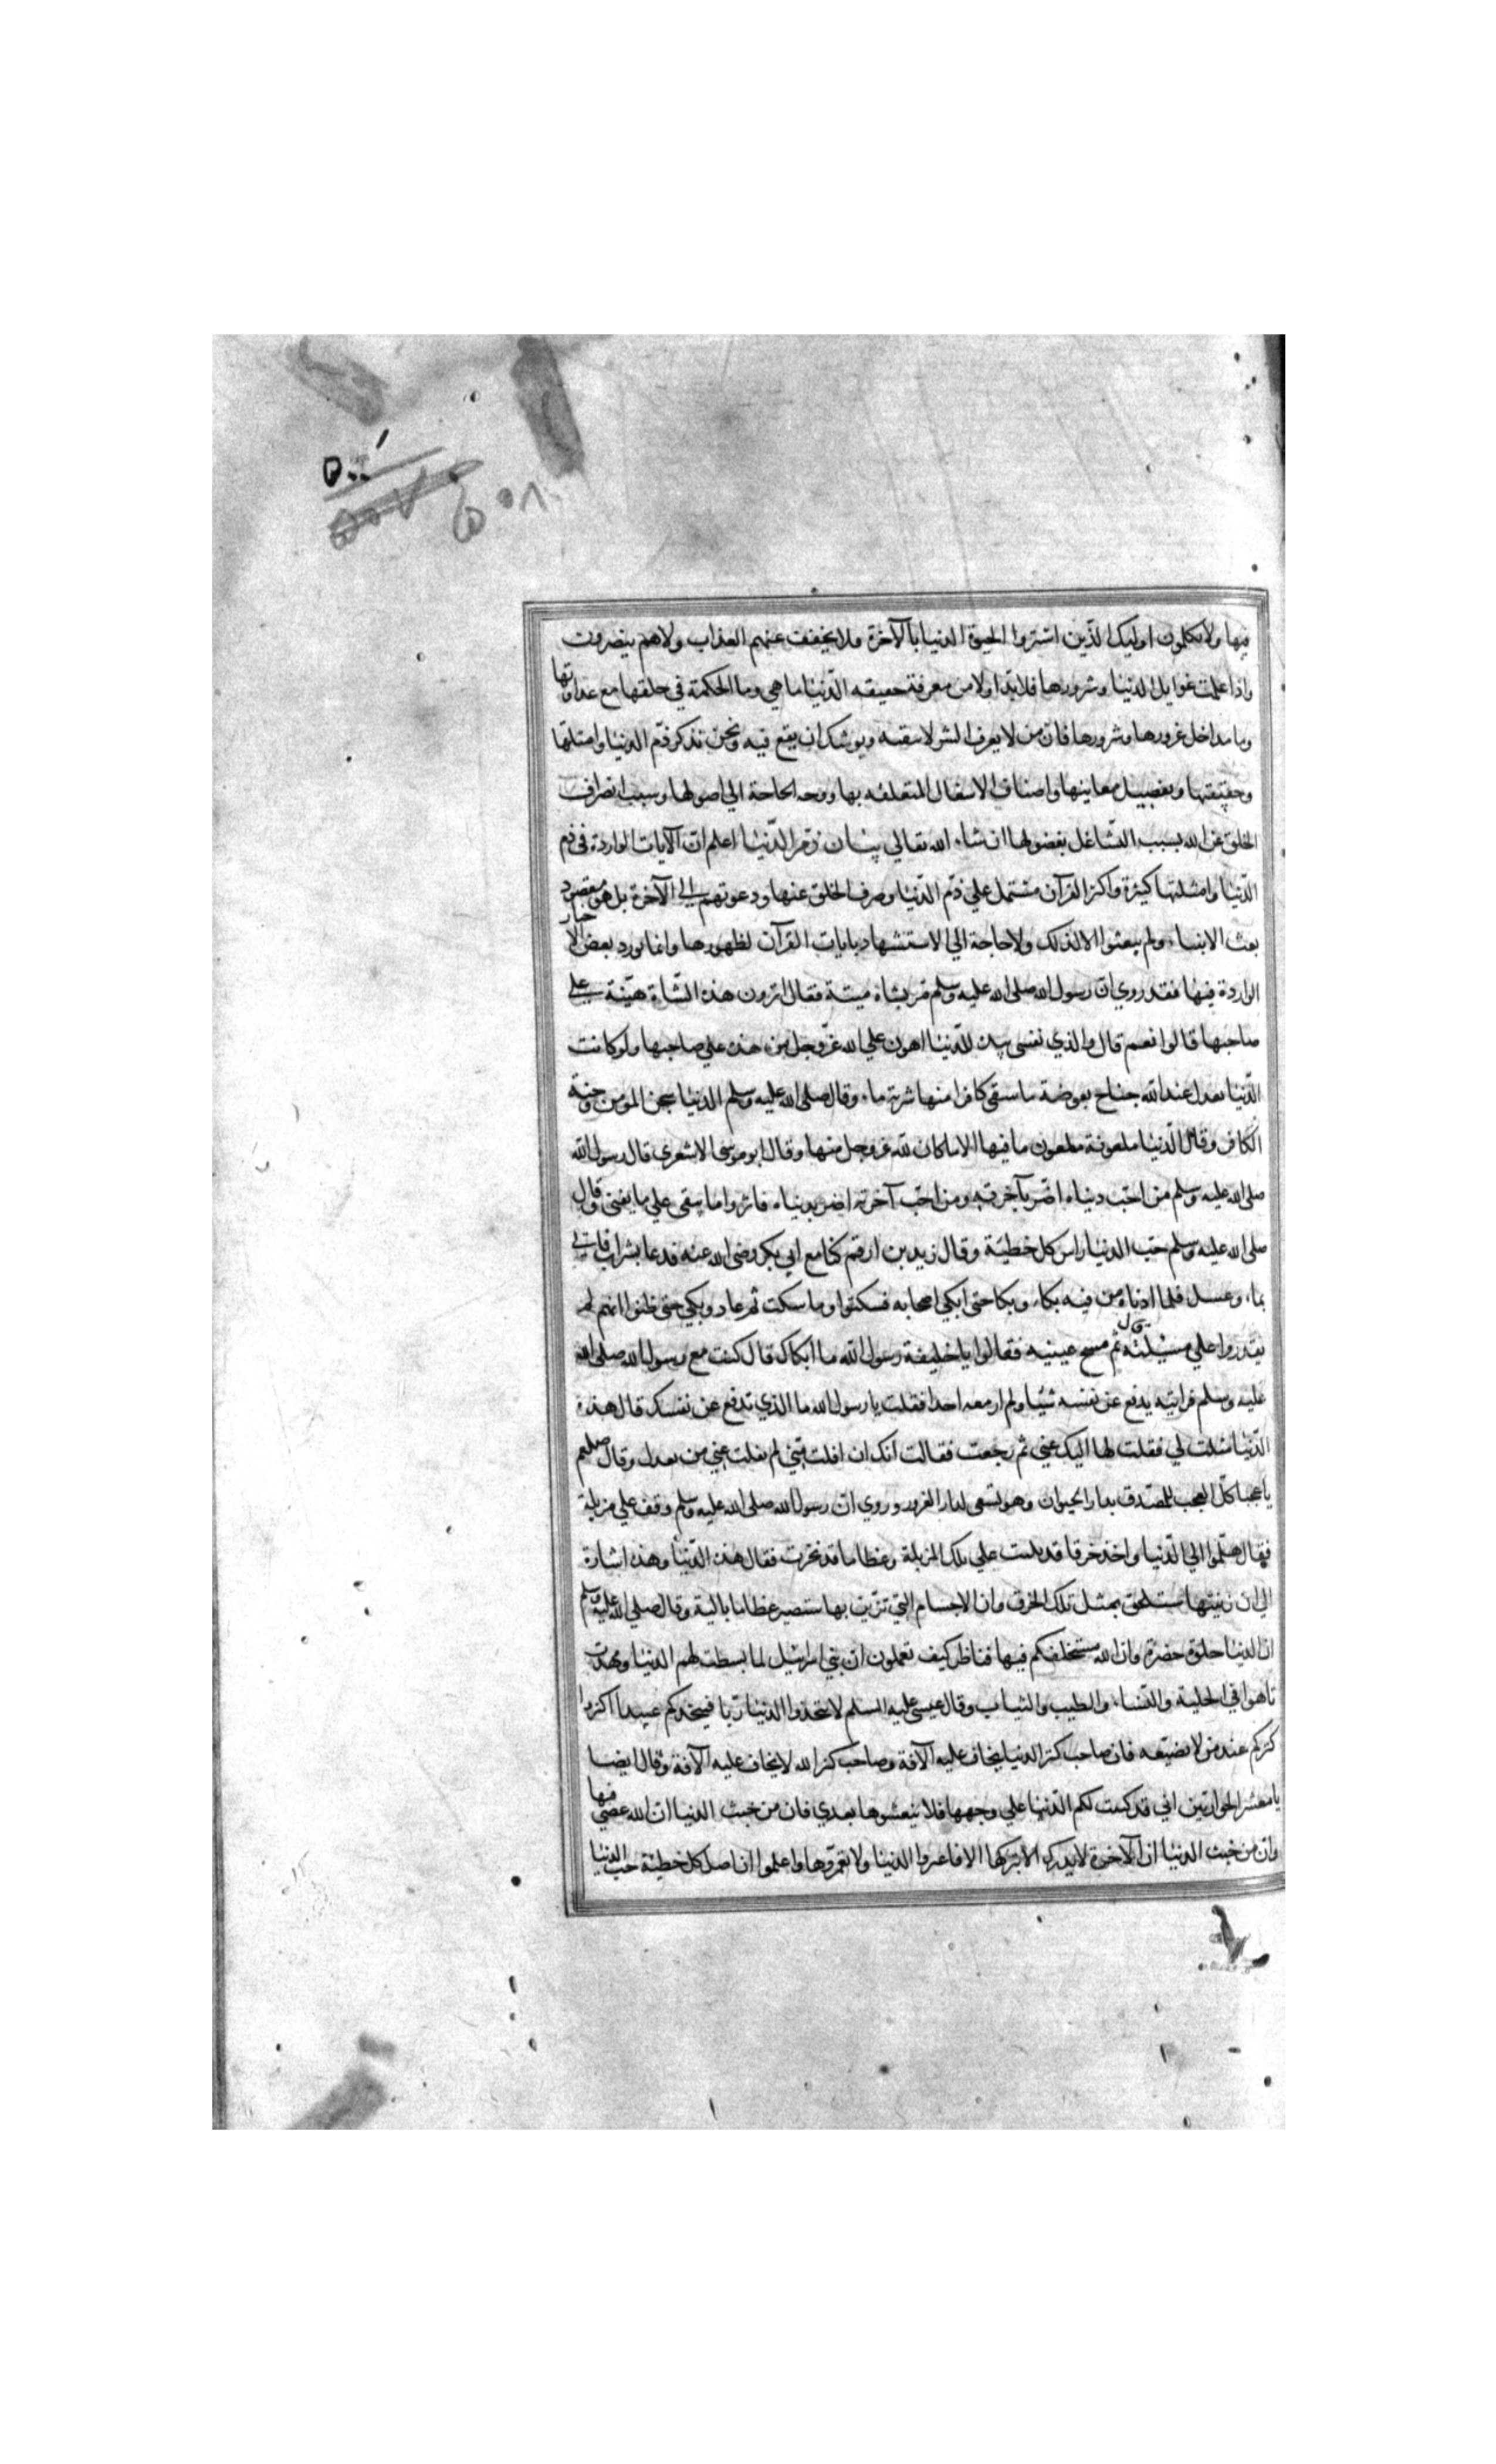 فيها ولا تكلمون اوليك الذين اشتروا الحيوة الدنيا بالآخرة فلا يخفف عنهم العذاب ولا هم ينصرون
واذا علمت غوايل الدنيا وشرورها فلا بد اولا من معرفة حقيقه الدنيا ما هي وما الحكمة في خلقها مع عداوتها
وما مداخل غرورها وشرورها فان من لا يعرف الشر لا يتقيه ويوشك ان يقع فيه ونحن نذكر ذم الدنيا وامثلتها
وحقيقتها وتفصيل معاينها واصناف الاشغال المتعلقه بها ووجه الحاجة الي اصولها وسبب انصراف
الخلق عن الله بسبب التشاغل بفضولها ان شاء الله تعالي بيان ذم الدنيا اعلم ان الآيات الواردة في ذم
الدنيا وامثلتها كثيرة واكثر القرآن مشتمل علي ذم الدنيا وصرف الخلق عنها ودعوتهم الي الآخرة بل هو مقصود
بعث الانبياء ولم يبعثوا الا لذلك ولا حاجة الي الاستشهاد بايات القرآن لظهورها وانما نورد بعض الاخبار
الواردة فيها فقد روي ان رسول الله صلى الله عليه وسلم مر بشاة ميتة فقال اترون هذه الشاة هينة علي
صاحبها قالوا نعم قال والذي نفسي بيده للدنيا اهون علي الله عز وجل من هذه علي صاحبها ولو كانت
الدنيا تعدل عند الله جناح بعوضة ما سقي كافرا منها شربة ماء وقال صلى الله عليه وسلم الدنيا سجن المومن وجنة
الكافر وقال الدنيا ملعونة ملعون ما فيها الا ما كان لله عز وجل منها وقال ابو موسى الاشعري قال رسول الله
صلى الله عليه وسلم من احب دنياه اضر بآخرته ومن احب آخرته اضر بدنياه فاثروا ما يبقي علي ما يفني وقال
صلى الله عليه وسلم حب الدنيا راس كل خطيئة وقال زيد بن ارقم كنا مع ابي بكر رضى الله عنه فدعا بشراب فاتي
بماء وعسل فلما ادناه من فيه بكاء وبكا حتى ابكي اصحابه فسكتوا وما سكت ثم عاد وبكي حتى ظنوا انهم لم
يقدروا علي مسئلته قال ثم مسح عينيه فقالوا يا خليفة رسول الله ما ابكاك قال كنت مع رسول الله صلى الله
عليه وسلم فرايته يدفع عن نفسه شيئا ولم ار معه احدا فقلت يا رسول الله ما الذي تدفع عن نفسك قال هذه
الدنيا مثلت لي فقلت لها اليك عني ثم رجعت فقالت انك ان افلت مني لم يفلت مني من بعدك وقال صلعم
يا عجبا كل العجب للمصدق بدار الحيوان وهو يسعى لدار الغرور وروي ان رسول الله صلى الله عليه وسلم وقف علي مزبلة
فقال هلموا الي الدنيا واخذ خرقا قد بليت علي تلك المزبلة وعظاما قد نخرت فقال هذه الدنيا وهذه اشارة
الي ان زينتها ستخلق بمثل تلك الخرق وان الاجسام التي تزين بها ستصير عظاما بالية وقال صلي الله عليه وسلم
ان الدنيا حلوة خضرة وان الله مستخلفكم فيها فناظر كيف تعملون ان بني اسرائيل لما بسطت لهم الدنيا ومهدت
تاهوا في الحلية والنساء والطيب والثياب وقال عيسى عليه السلم لا تتخذوا الدنيا ربا فيتخذكم عبيدا اكنزوا
كنزكم عند من لا يضيعه فان صاحب كنز الدنيا يخاف عليه الآفة وصاحب كنز الله لا يخاف عليه الآفة وقال ايضا
يا معشر الحواريين اني قد كببت لكم الدنيا علي وجهها فلا تنعشوها بعدي فان من خبث الدنيا ان الله عصي فيها
وان من خبث الدنيا ان الآخرة لا يدرك الا بتركها الا فاعبروا الدنيا ولا تعمروها واعلموا ان اصل كل خطيئة حب الدنيا